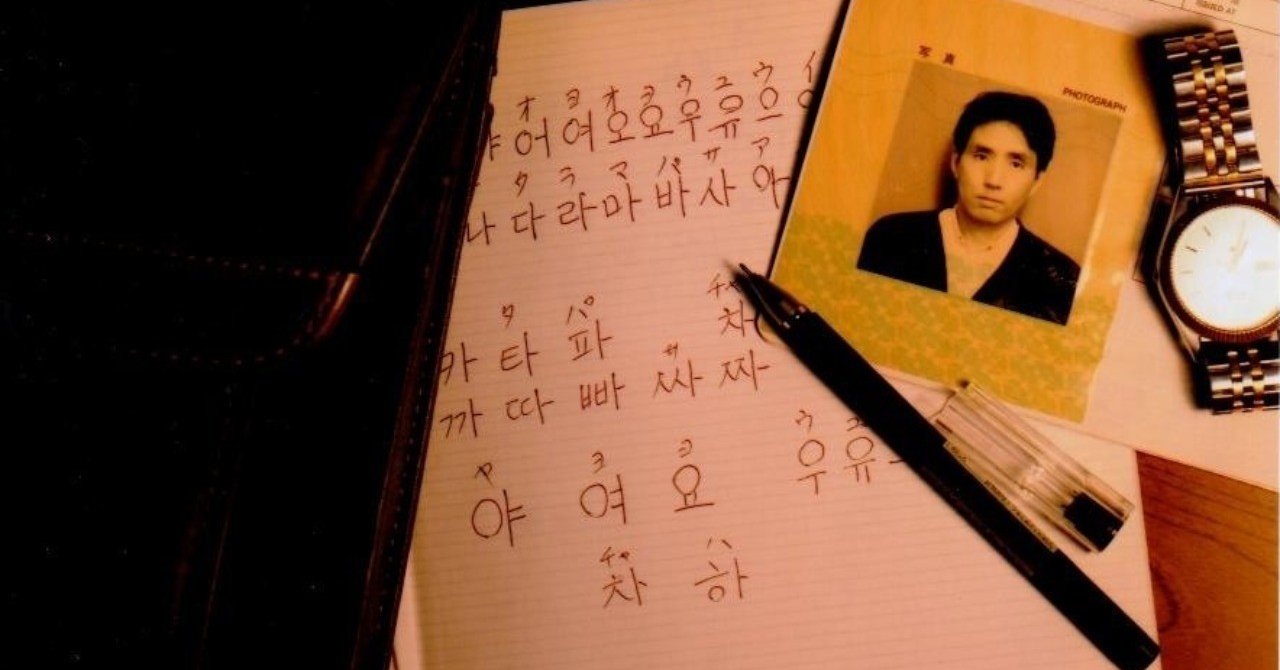 ISSUED AT
写真
PHOTOGRAPH
オ ヨ オ ヨ ウ ユ ウ イ
어 여 오 요 우 유 으
タ ラ マ パ サ ア
나 다 라 마 바 사 아
タ パ チャ
카 타 파 차
サ
까 따 빠 싸 짜
ヤ ヨ ヨ ウ ユ
야 여 요 우 유
チャ ハ
차 하